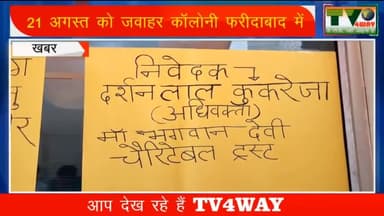 21 अगस्त को जवाहर कॉलोनी फरीदाबाद में
TV4WAY
खबर
निवेदक -
दर्शन लाल कुकरेजा
(अधिवक्ता)
माँ भगवान देवी
चैरिटेबल ट्रस्ट
आप देख रहे हैं TV4WAY